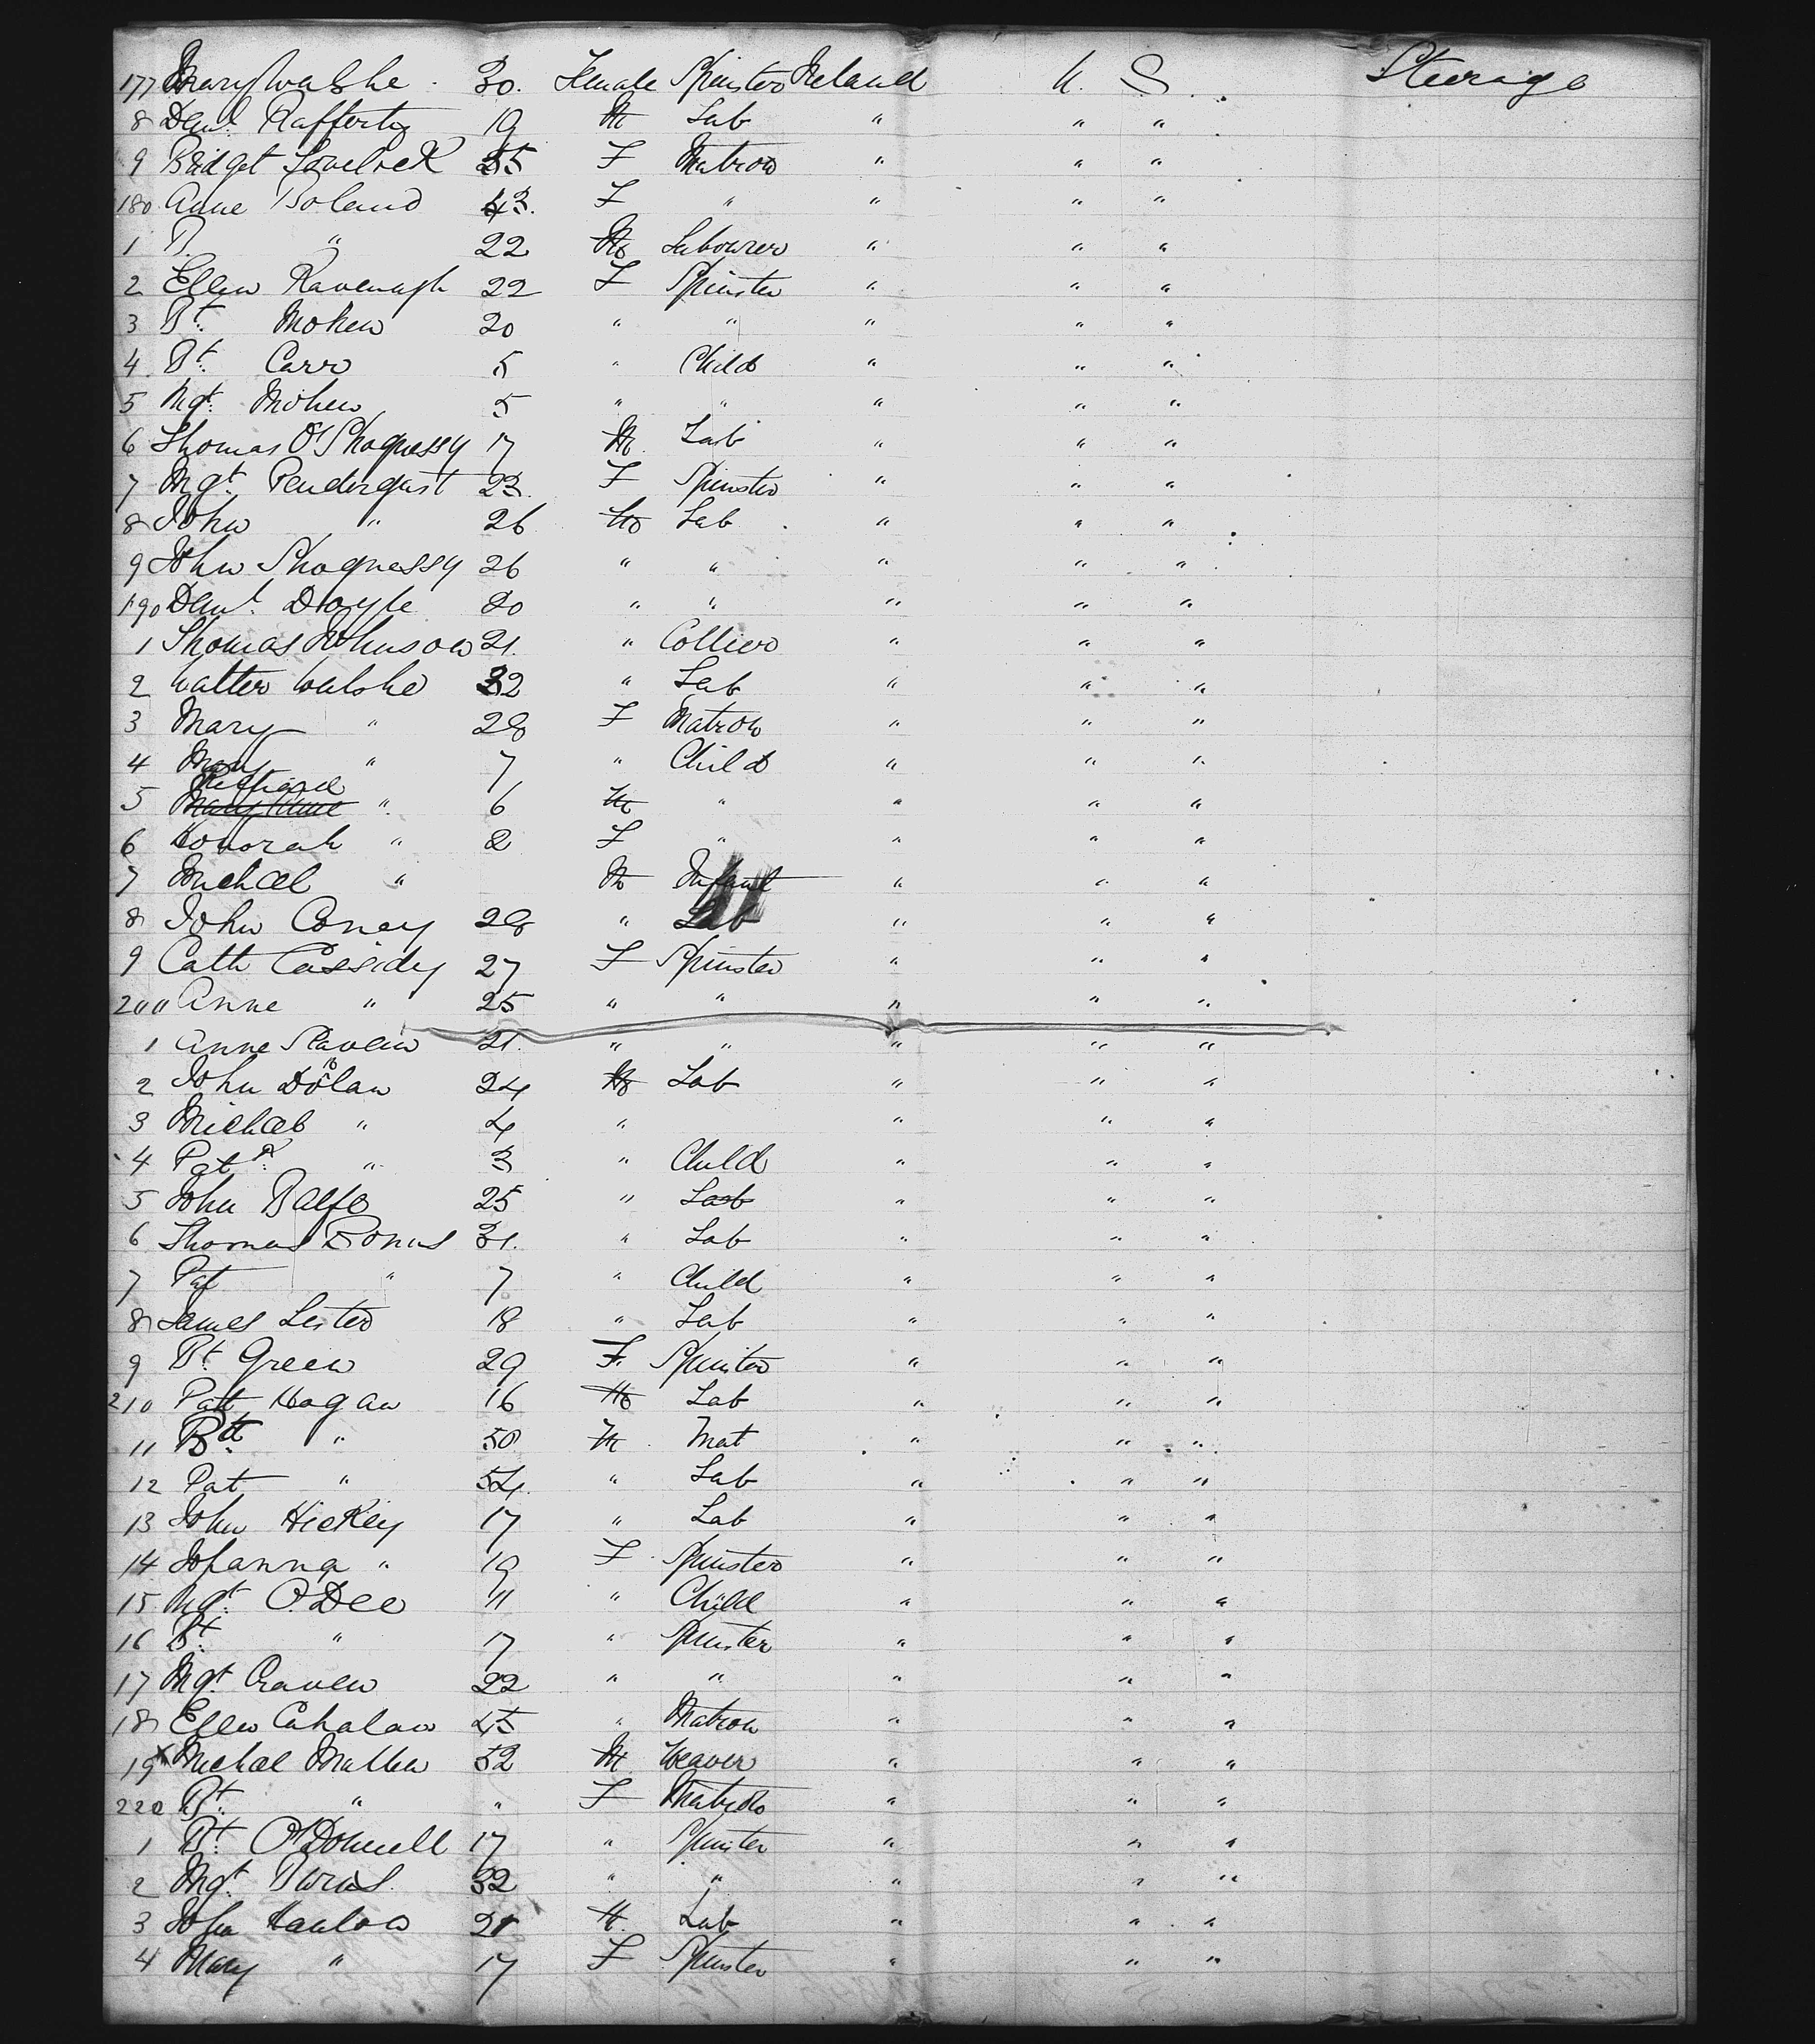 177 Mary Walshe 30. Female Spinster Ireland U. S. Steerage
8 Danl. Rafferty 19 M Lab " " "
9 Bridget Lovelock 35 F Matron " " "
180 Anne Boland 43. F " " " "
1 P. " 22 M Labourer " " "
2 Ellen Kavenagh 22 F Spinster " " "
3 Bt. Mohen 20 " " " " "
4 Bt. Carr 5 " Child " " "
5 Mgt. Mohen 5 " " " " "
6 Thomas O'Shagnessy 17 M. Lab " " "
7 Mgt. Pendergast 23. F Spinster " " "
8 John " 26 M Lab " " "
9 John Shagnessy 26 " " " " "
190 Danl. Doyle 20 " " " " "
1 Thomas Johnson 21. " Collier " " "
2 Walter Walshe 32 " Lab " " "
3 Mary " 28 F Matron " " "
4 Mary " 7 " Child " " "
5 " 6 M " " " "
6 Honorah " 2 F " " " "
7 Michael " M Infant " " "
8 John Coney 28 " Lab " " "
9 Cath Cassidy 27 F Spinster " " "
200 Anne " 25 " " " " "
1 Anne Slaven 21. " " " " "
2 John Dolan 24 M Lab " " "
3 Michael " 4 " " " "
4 Patk. " 3 " Child " " "
5 John Balfe 25 " Lab " " "
6 Thomas Bonus 31. " Lab " " "
7 Pat " 7 " Child " " "
8 James Lester 18 " Lab " " "
9 Bt. Green 29 F. Spinster " " "
210 Patt Hogan 16 M Lab " " "
11 Bt. " 50 M. Mat " " "
12 Pat " 54. " Lab " " "
13 John Hickey 17 " Lab " " "
14 Johanna " 19 F. Spinster " " "
15 Mgt. O'Dee 11 " Child " " "
16 Bt. " 17 " Spinster " " "
17 Mgt. Craven 22 " " " " "
18 Ellen Cahalan 45 " Matron " " "
19 x Michael Mullen 52 M Weaver " " "
220 Bt. " " F Matron " " "
1 Bt. O'Donnell 17 " Spinster " " "
2 Mgt. Burns 32 " " " " "
3 John Hanlon 21 M. Lab " " "
4 Mary " 17 F Spinster " " "